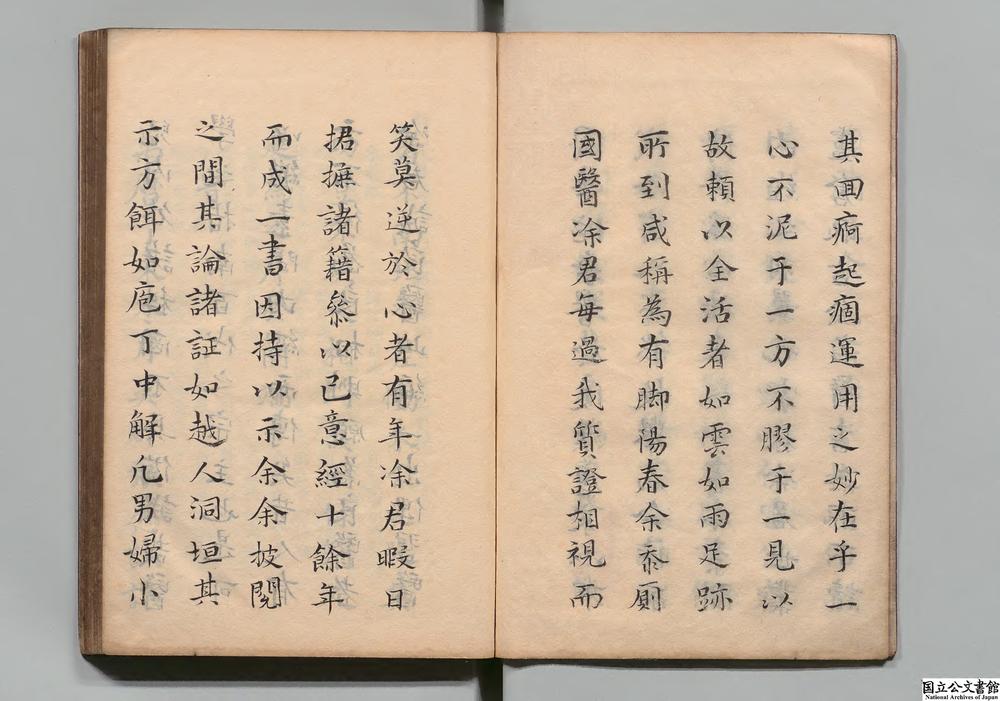 其囬痾起痼運用之妙在乎一
心不泥于一方不膠于一見以
故頼以全活者如雲如雨足跡
所到咸稱為有脚陽春余忝厠
國醫凃君每過我質證相視而
笑莫逆於心者有年凃君暇日
捃摭諸籍叅以已意經十餘年
而成一書因持以示余余披閱
之間其論諸証如越人洞垣其
示方餌如庖丁中解凢男婦小
国立公文書館
National Archives of Japan